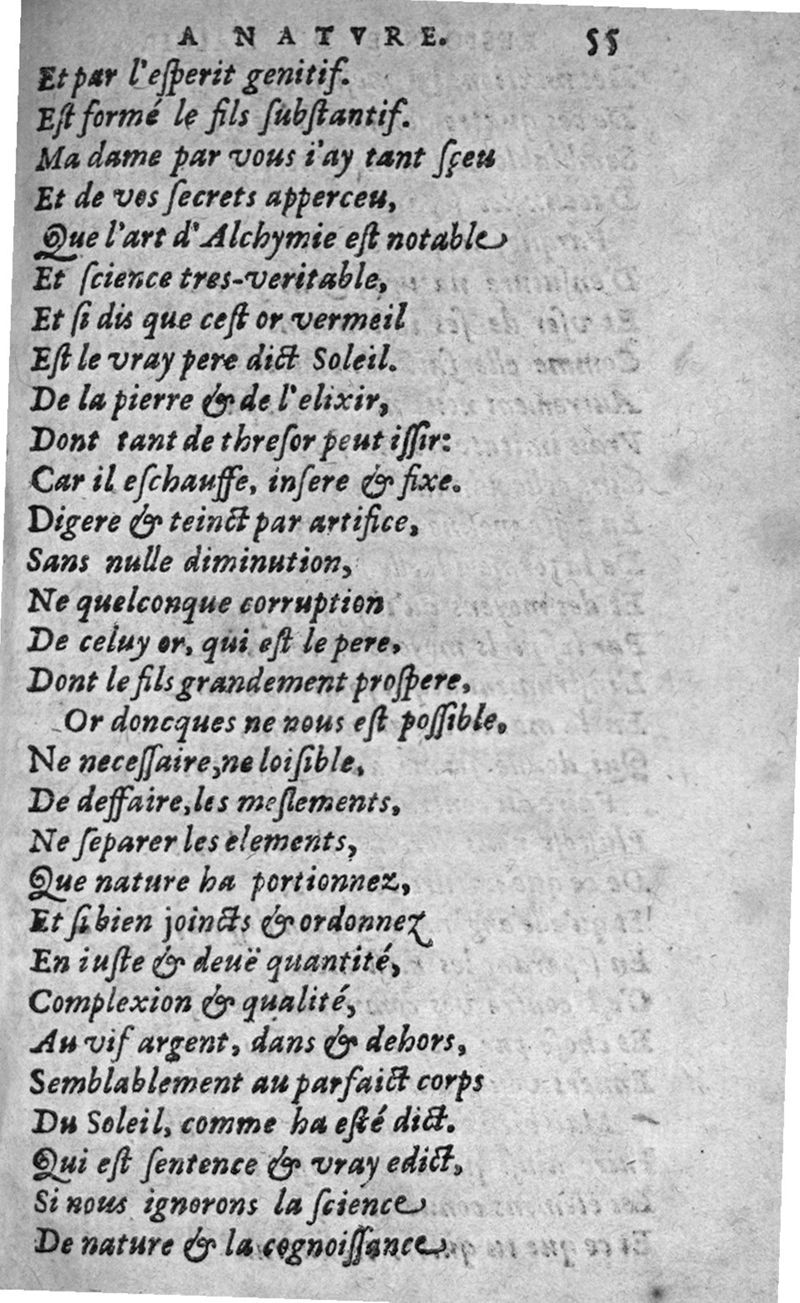 A NATVRE. 55
Et par l'eſperit genitif.
Eſt formé le fils ſubſtantif.
Ma dame par vous i'ay tant ſçeu
Et de vos ſecrets apperceu,
Que l'art d'Alchymie eſt notable
Et ſcience tres-veritable,
Et ſi dis que ceſt or vermeil
Eſt le vray pere dict Soleil.
De la pierre & de l'elixir,
Dont tant de threſor peut iſſir:
Car il eſchauffe, inſere & fixe.
Digere & teinct par artifice,
Sans nulle diminution,
Ne quelconque corruption
De celuy or, qui eſt le pere,
Dont le fils grandement proſpere,
Or doncques ne nous eſt poſſible,
Ne neceſſaire, ne loiſible,
De deffaire, les meſlements,
Ne ſeparer les elements,
Que nature ha portionnez,
Et ſi bien joincts & ordonnez
En iuſte & deuë quantité,
Complexion & qualité,
Au vif argent, dans & dehors,
Semblablement au parfaict corps
Du Soleil, comme ha eſté dict.
Qui eſt ſentence & vray edict,
Si nous ignorons la ſcience
De nature & la cognoiſſance,